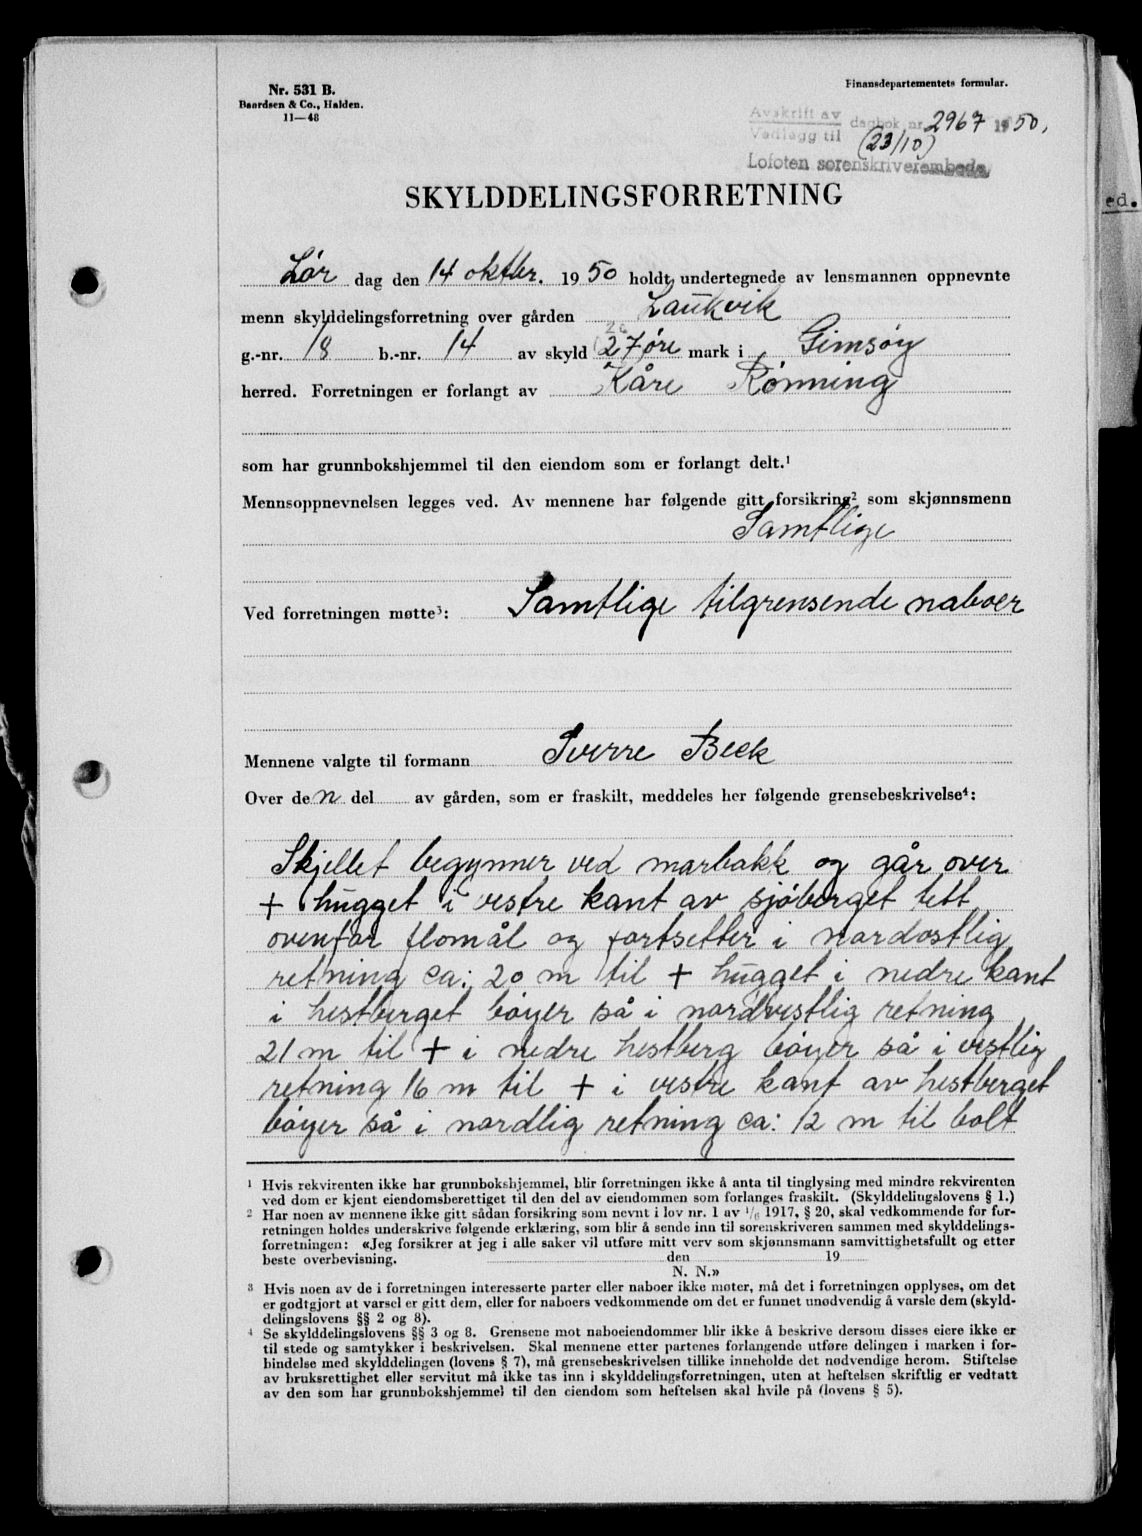 Nr. 531 B.
Baardsen & Co., Halden.
11—48
Finansdepartementets formular.
Avskrift av
Vedlegg til
dagbok nr. 2967 1950.
(23/10)
Lofoten sorenskriverembede
ed.
SKYLDDELINGSFORRETNING
Lør dag den 14 oktbr. 1950 holdt undertegnede av lensmannen oppnevnte
menn skylddelingsforretning over gården Laukvik
g.-nr. 18 b.-nr. 14 av skyld 27 øre mark i Gimsøy
herred. Forretningen er forlangt av Kåre Rønning
som har grunnbokshjemmel til den eiendom som er forlangt delt.¹
Mennsoppnevnelsen legges ved. Av mennene har følgende gitt forsikring² som skjønnsmenn
Samtlige
Ved forretningen møtte³: Samtlige tilgrensende naboer
Mennene valgte til formann Sverre Beck
Over den del av gården, som er fraskilt, meddeles her følgende grensebeskrivelse⁴:
Skjellet begynner ved marbakk og går over
+ hugget i vestre kant av sjøberget tett
ovenfor flomål og fortsetter i nordostlig
retning ca: 20 m til + hugget i nedre kant
i hestberget bøyer så i nordvestlig retning
21 m til + i nedre hestberg bøyer så i vestlig
retning 16 m til + i vestre kant av hestberget
bøyer så i nordlig retning ca: 12 m til bolt
¹ Hvis rekvirenten ikke har grunnbokshjemmel, blir forretningen ikke å anta til tinglysing med mindre rekvirenten
ved dom er kjent eiendomsberettiget til den del av eiendommen som forlanges fraskilt. (Skylddelingslovens § 1.)
² Har noen av mennene ikke gitt sådan forsikring som nevnt i lov nr. 1 av 1/6 1917, § 20, skal vedkommende før for-
retningen holdes underskrive følgende erklæring, som blir å sende inn til sorenskriveren sammen med skylddelings-
forretningen: «Jeg forsikrer at jeg i alle saker vil utføre mitt verv som skjønnsmann samvittighetsfullt og etter
beste overbevisning. den 19
N. N.»
³ Hvis noen av de i forretningen interesserte parter eller naboer ikke møter, må det i forretningen opplyses, om det
er godtgjort at varsel er gitt dem, eller for naboers vedkommende om det er funnet unødvendig å varsle dem (skyld-
delingslovens §§ 2 og 8).
⁴ Se skylddelingslovens §§ 3 og 8. Grensene mot naboeiendommer blir ikke å beskrive dersom disses eiere ikke er
til stede og samtykker i beskrivelsen. Skal mennene etter partenes forlangende utføre delingen i marken i for-
bindelse med skylddelingen (lovens § 7), må grensebeskrivelsen tillike inneholde det nødvendige herom. Stiftelse
av bruksrettighet eller servitut må ikke tas inn i skylddelingsforretningen, uten at heftelsen skriftlig er vedtatt
av den som har grunnbokshjemmel til den eiendom som heftelsen skal hvile på (lovens § 5).